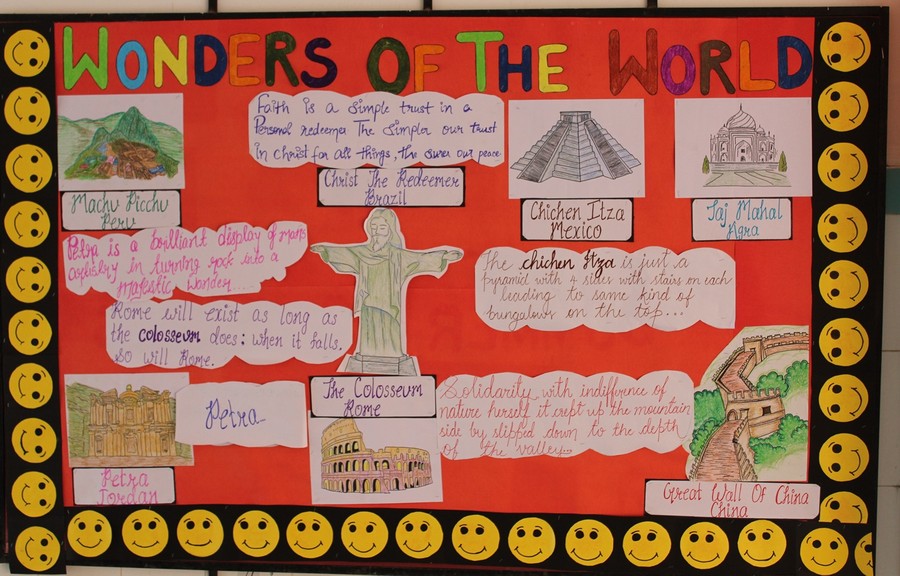 WONDERS OF THE WORLD
Faith is a simple trust in a
Personal redeemer The simpler our trust
in Christ for all things, the surer our peace
Machu Picchu
Peru
Christ The Redeemer
Brazil
Chichen Itza
Mexico
Taj Mahal
Agra
Petra is a brilliant display of man's
artistry in turning rock into a
majestic wonder.....
The chichen Itza is just a
pyramid with 4 sides with stairs on each
leading to same kind of
bungalows on the top...
Rome will exist as long as
the colosseum does: when it falls.
So will Rome.
Petra..
The Colosseum
Rome
Solidarity with indifference of
nature herself it crept up the mountain
side by slipped down to the depth
of the valley.
Petra
Jordan
Great Wall Of China
China